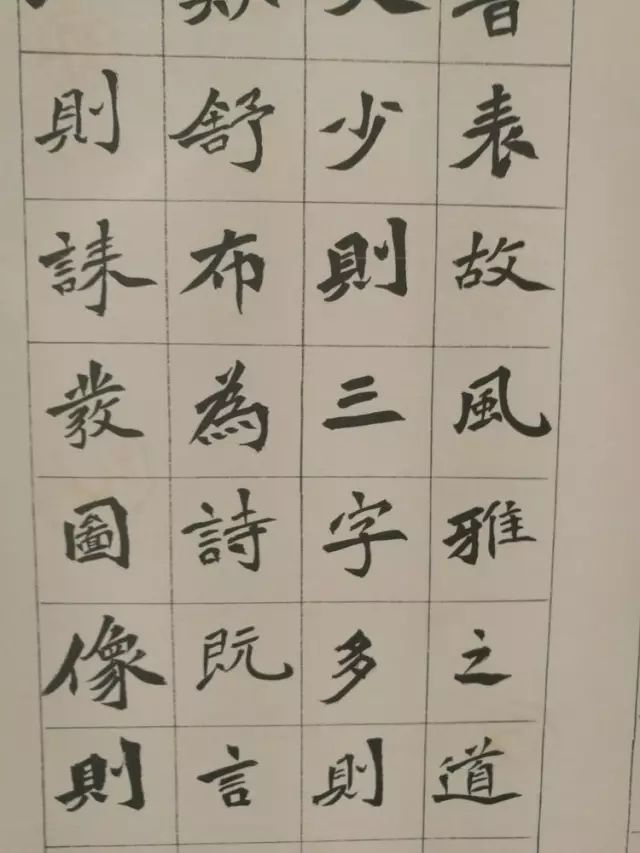 表故風雅之道
少則三字多則
舒布為詩既言
則誄發圖像則